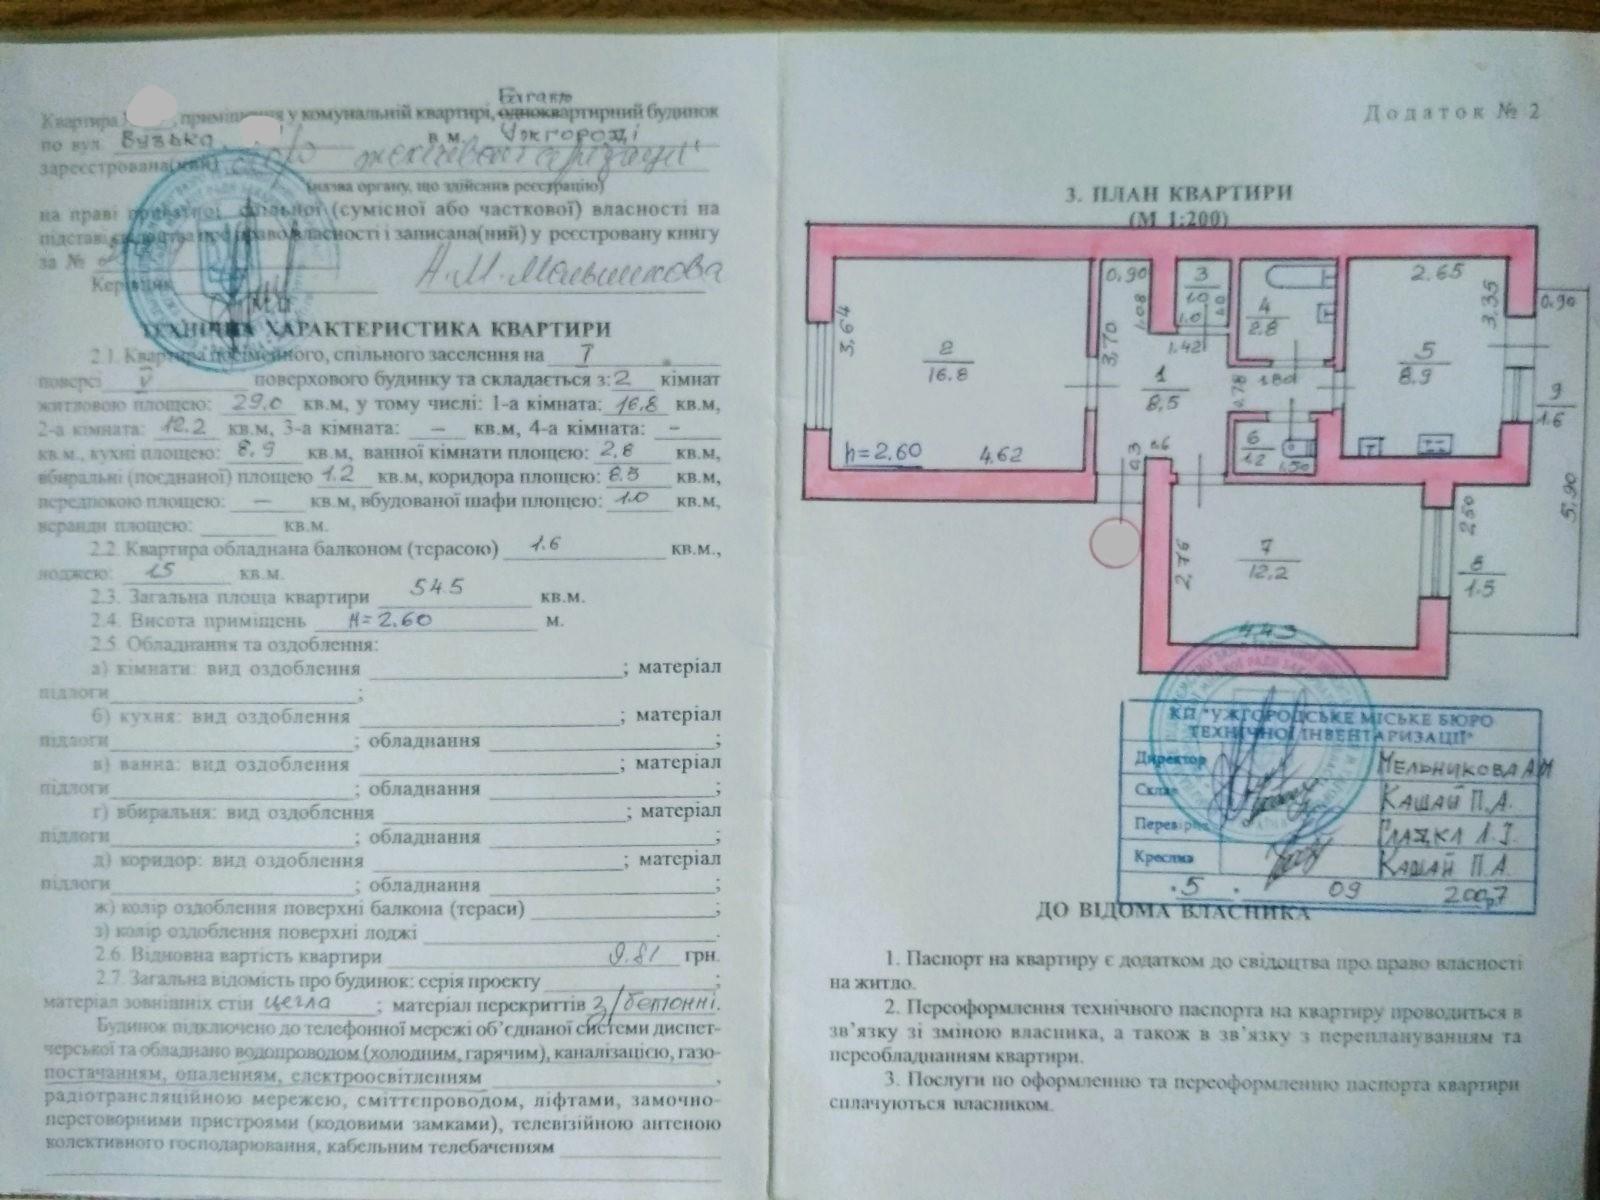 Квартира, приміщення у комунальній квартирі, одноквартирний будинок
Багато
по вул. Вузька в м. Ужгороді
зареєстрована(ний)
(назва органу, що здійснив реєстрацію)
на праві приватної спільної (сумісної або часткової) власності на
підставі свідоцтва про право власності і записана(ний) у реєстровану книгу
за №
Керівник А.М. Мельникова
М.П.
ТЕХНІЧНА ХАРАКТЕРИСТИКА КВАРТИРИ
2.1. Квартира посімейного, спільного заселення на I
поверсі V поверхового будинку та складається з: 2 кімнат
житловою площею: 29,0 кв.м, у тому числі: 1-а кімната: 16,8 кв.м,
2-а кімната: 12.2 кв.м, 3-а кімната: – кв.м, 4-а кімната: –
кв.м., кухні площею: 8,9 кв.м, ванної кімнати площею: 2,8 кв.м,
вбиральні (поєднаної) площею 1.2 кв.м, коридора площею: 8.5 кв.м,
передпокою площею: – кв.м, вбудованої шафи площею: 1.0 кв.м,
веранди площею: кв.м.
2.2. Квартира обладнана балконом (терасою) 1.6 кв.м.,
лоджею: 1.5 кв.м.
2.3. Загальна площа квартири 54.5 кв.м.
2.4. Висота приміщень H=2.60 м.
2.5. Обладнання та оздоблення:
а) кімнати: вид оздоблення ; матеріал
підлоги ;
б) кухня: вид оздоблення ; матеріал
підлоги ; обладнання ;
в) ванна: вид оздоблення ; матеріал
підлоги ; обладнання ;
г) вбиральня: вид оздоблення ; матеріал
підлоги ; обладнання ;
д) коридор: вид оздоблення ; матеріал
підлоги ; обладнання ;
ж) колір оздоблення поверхні балкона (тераси) ;
з) колір оздоблення поверхні лоджі .
2.6. Відновна вартість квартири 9.81 грн.
2.7. Загальна відомість про будинок: серія проекту ;
матеріал зовнішніх стін цегла ; матеріал перекриттів з/бетонні.
Будинок підключено до телефонної мережі об’єднаної системи диспет-
черської та обладнано водопроводом (холодним, гарячим), каналізацією, газо-
постачанням, опаленням, електроосвітленням ,
радіотрансляційною мережею, сміттєпроводом, ліфтами, замочно-
переговорними пристроями (кодовими замками), телевізійною антеною
колективного господарювання, кабельним телебаченням
Додаток № 2
3. ПЛАН КВАРТИРИ
(М 1:200)
0.90 3 2.65
1.0 4 3.35 0.90
3,64 1.08 1.0 1.0 2.8
2 3,70 1.42 5
16.8 1 1.80 8.9 9
8,5 0.78 1.6
h=2.60 4,62 0.3 0.6 6
1.2 1,50
2.50 5.90
2,76 7 8
12.2 1.5
4,43
КП "УЖГОРОДСЬКЕ МІСЬКЕ БЮРО
ТЕХНІЧНОЇ ІНВЕНТАРИЗАЦІЇ"
Директор МЕЛЬНИКОВА А.М
Склав КАШАЙ П.А.
Перевірив
Креслив КАШАЙ П.А.
5 . 09 2007
ДО ВІДОМА ВЛАСНИКА
1. Паспорт на квартиру є додатком до свідоцтва про право власності
на житло.
2. Переоформлення технічного паспорта на квартиру проводиться в
зв’язку зі зміною власника, а також в зв’язку з переплануванням та
переобладнанням квартири.
3. Послуги по оформленню та переоформленню паспорта квартири
сплачуються власником.